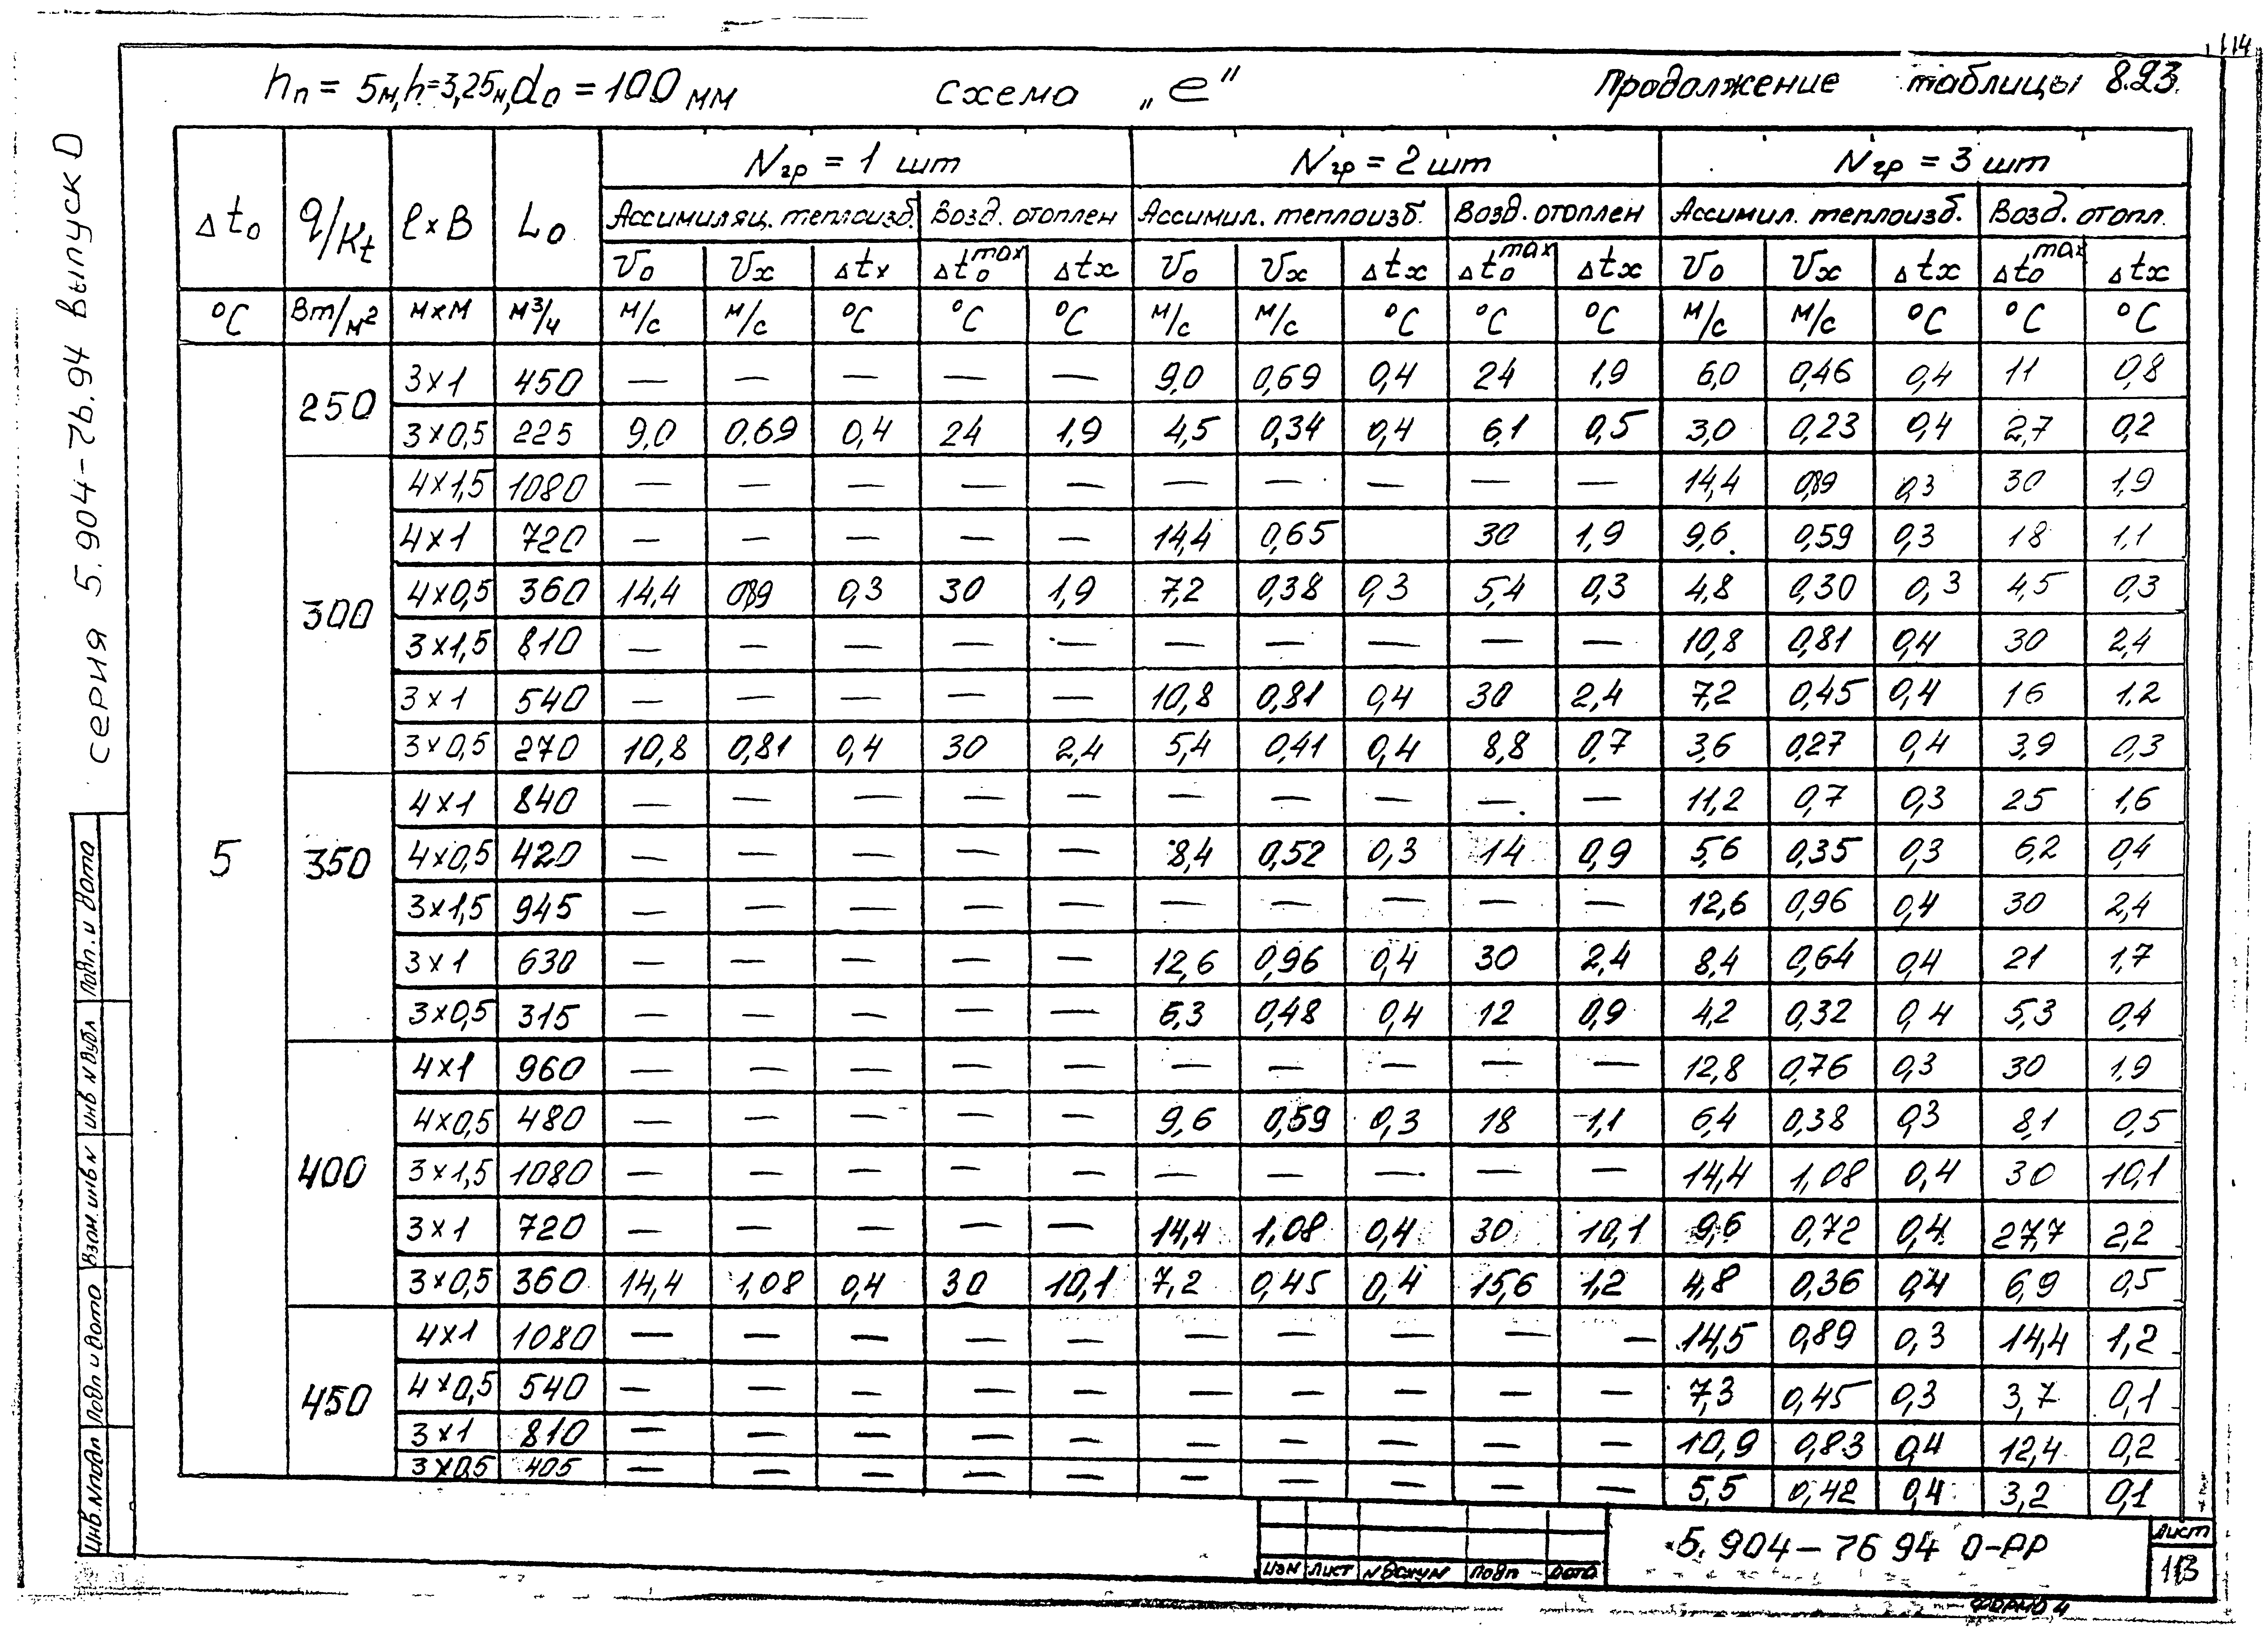 114
hп = 5м, h=3,25м, d₀ = 100 мм схема „е" Продолжение таблицы 8.23.
серия 5.904-76.94 выпуск 0
Δt₀ q/Kt ℓ×B L₀ Nгр = 1 шт Nгр = 2 шт Nгр = 3 шт
Ассимиляц. теплоизб. Возд. отоплен Ассимил. теплоизб. Возд. отоплен Ассимил. теплоизб. Возд. отопл.
V₀ Vx Δtx Δt₀max Δtx V₀ Vx Δtx Δt₀max Δtx V₀ Vx Δtx Δt₀max Δtx
°C Вт/м² м×м м³/ч м/с м/с °C °C °C м/с м/с °C °C °C м/с м/с °C °C °C
5
250
3×1 450 — — — — — 9,0 0,69 0,4 24 1,9 6,0 0,46 0,4 11 0,8
3×0,5 225 9,0 0,69 0,4 24 1,9 4,5 0,34 0,4 6,1 0,5 3,0 0,23 0,4 2,7 0,2
300
4×1,5 1080 — — — — — — — — — — 14,4 0,89 0,3 30 1,9
4×1 720 — — — — — 14,4 0,65 30 1,9 9,6 0,59 0,3 18 1,1
4×0,5 360 14,4 0,89 0,3 30 1,9 7,2 0,38 0,3 5,4 0,3 4,8 0,30 0,3 4,5 0,3
3×1,5 810 — — — — — — — — — — 10,8 0,81 0,4 30 2,4
3×1 540 — — — — — 10,8 0,81 0,4 30 2,4 7,2 0,45 0,4 16 1,2
3×0,5 270 10,8 0,81 0,4 30 2,4 5,4 0,41 0,4 8,8 0,7 3,6 0,27 0,4 3,9 0,3
350
4×1 840 — — — — — — — — — — 11,2 0,7 0,3 25 1,6
4×0,5 420 — — — — — 8,4 0,52 0,3 14 0,9 5,6 0,35 0,3 6,2 0,4
3×1,5 945 — — — — — — — — — — 12,6 0,96 0,4 30 2,4
3×1 630 — — — — — 12,6 0,96 0,4 30 2,4 8,4 0,64 0,4 21 1,7
3×0,5 315 — — — — — 6,3 0,48 0,4 12 0,9 4,2 0,32 0,4 5,3 0,4
400
4×1 960 — — — — — — — — — — 12,8 0,76 0,3 30 1,9
4×0,5 480 — — — — — 9,6 0,59 0,3 18 1,1 6,4 0,38 0,3 8,1 0,5
3×1,5 1080 — — — — — — — — — — 14,4 1,08 0,4 30 10,1
3×1 720 — — — — — 14,4 1,08 0,4 30 10,1 9,6 0,72 0,4 27,7 2,2
3×0,5 360 14,4 1,08 0,4 30 10,1 7,2 0,45 0,4 15,6 1,2 4,8 0,36 0,4 6,9 0,5
450
4×1 1080 — — — — — — — — — — 14,5 0,89 0,3 14,4 1,2
4×0,5 540 — — — — — — — — — — 7,3 0,45 0,3 3,7 0,1
3×1 810 — — — — — — — — — — 10,9 0,83 0,4 12,4 0,2
3×0,5 405 — — — — — — — — — — 5,5 0,42 0,4 3,2 0,1
Инв.№подл Подп и дата Взам.инв.№ инв №дубл Подп. и дата
изм лист № докум Подп дата
5.904-76 94 0-РР
Лист
113
Формат 4